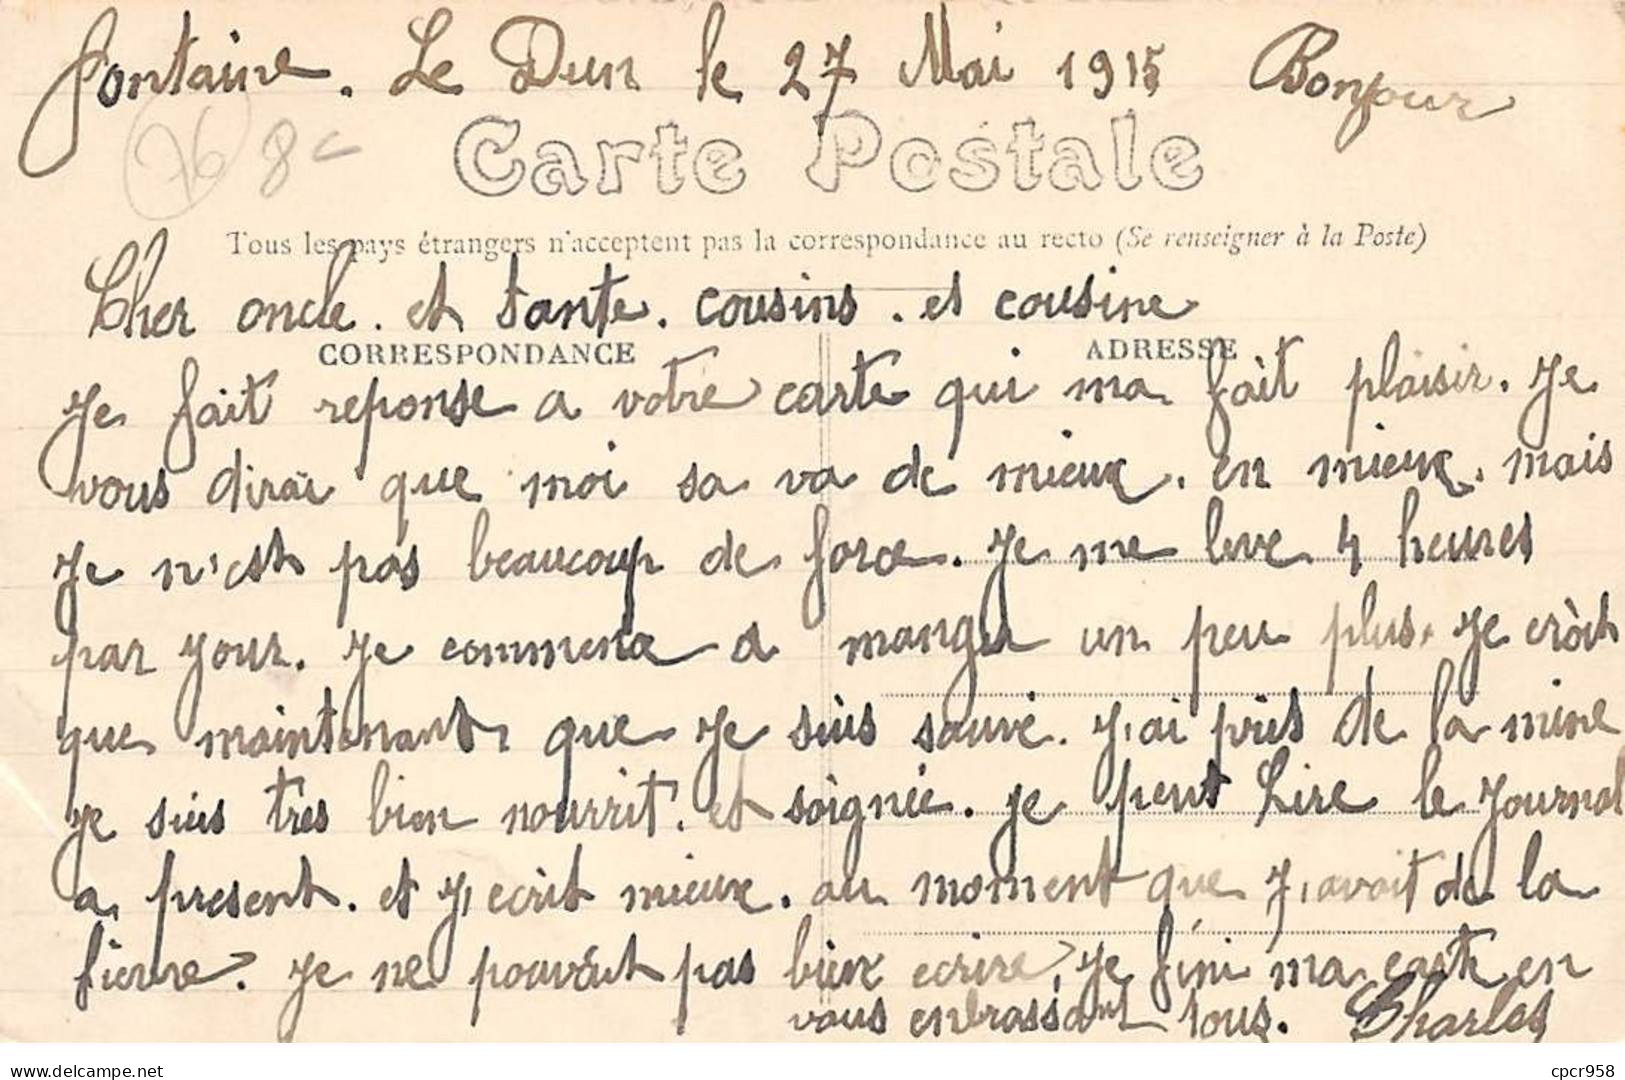 fontaine. Le Dun le 27 Mai 1915 Bonjour
76 8c
Carte Postale
Tous les pays étrangers n'acceptent pas la correspondance au recto (Se renseigner à la Poste)
Cher oncle. et tante. cousins. et cousine
CORRESPONDANCE ADRESSE
Je fait reponse a votre carte qui ma fait plaisir. Je
vous dirai que moi sa va de mieux. en mieux. mais
Je n'est pas beaucoup de force. Je me leve 4 heures
par jour. Je commence a manger un peu plus. Je croit
que maintenant. que Je suis sauvé. J'ai pris de la mine
Je suis tres bien nourrit. et soignée. Je peut Lire le Journal
a present. et J'ecrit mieux. au moment que J'avait de la
fievre. Je ne pouvait pas bien ecrire. Je fini ma carte en
vous enbrassant tous. Charles
Delcampe.net
cpcr958